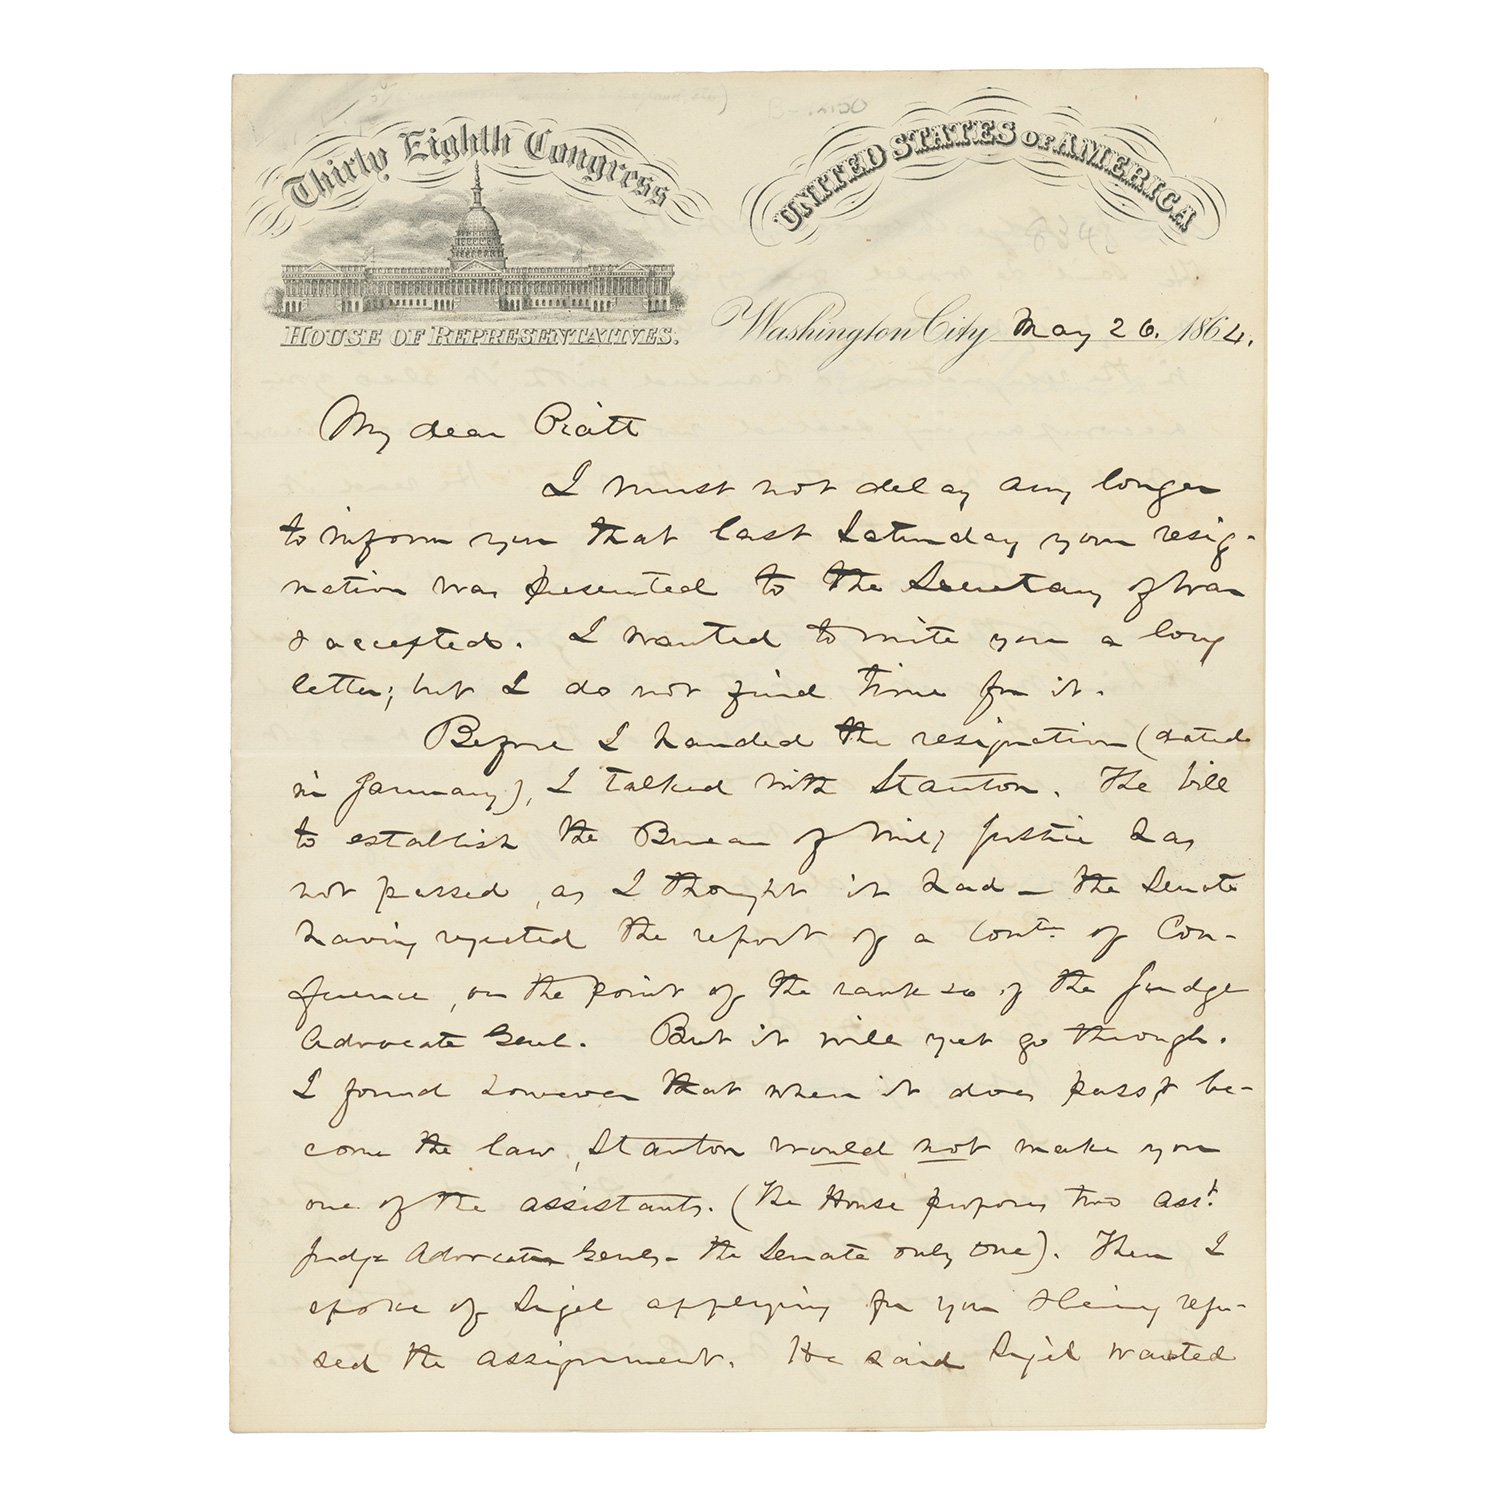 Thirty Eighth Congress
HOUSE OF REPRESENTATIVES.
UNITED STATES OF AMERICA
Washington City May 26. 1864.
My dear Piatt
I must not delay any longer
to inform you that last Saturday your resig-
nation was presented to the Secretary of War
& accepted. I wanted to write you a long
letter; but I do not find time for it.
Before I handed the resignation (dated
in January), I talked with Stanton. The bill
to establish the Bureau of Mily Justice has
not passed, as I thought it had – the Senate
having rejected the report of a Comtee of Con-
ference, on the point of the rank &c of the Judge
Advocate Genl. But it will yet go through.
I found however that when it does pass & be-
come the law, Stanton would not make you
one of the assistants. (The House proposes two Asst.
Judge Advocates Genls – the Senate only one). Then I
spoke of Sigel applying for you & being refu-
sed the assignment. He said Sigel wanted